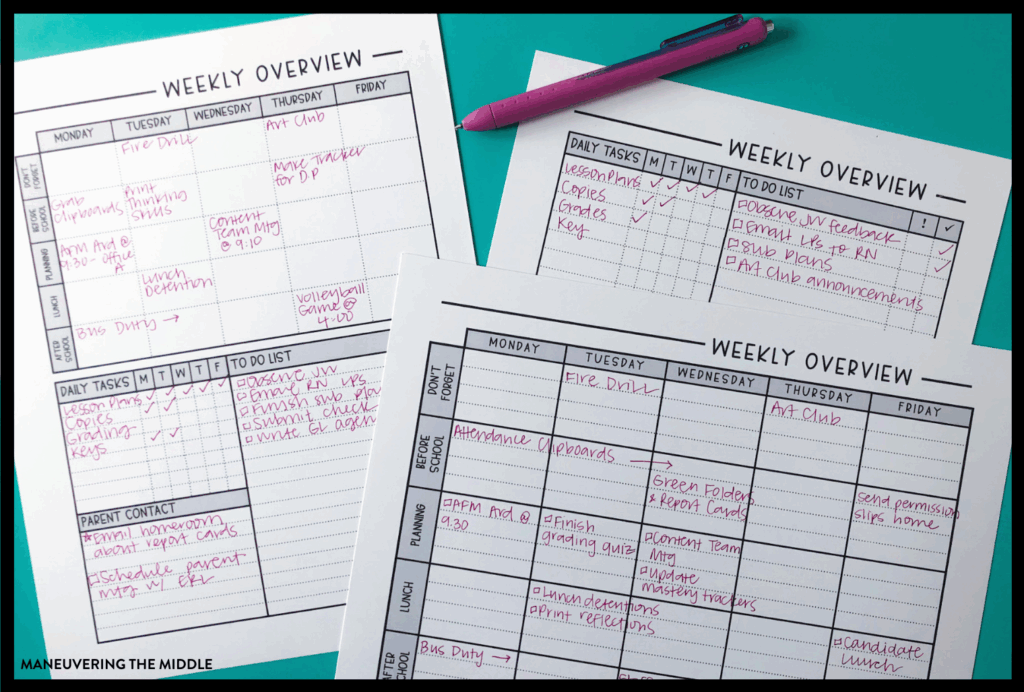 WEEKLY OVERVIEW
MONDAY TUESDAY WEDNESDAY THURSDAY FRIDAY
DON'T
FORGET
Fire Drill
Art Club
Make Tracker
for D.P
BEFORE
SCHOOL
Grab
Clipboards
Print
Thinking
Skills
Content
Team Mtg
@ 9:10
PLANNING
APM Ard @
9:30 - Office
A
Lunch
Detention
LUNCH
Volleyball
Game @
4:00
AFTER
SCHOOL
Bus Duty →
DAILY TASKS M T W T F
Lesson Plans ✓ ✓ ✓ ✓ ✓
Copies ✓ ✓
Grading
Keys ✓ ✓
TO DO LIST
Observe JW
Email RN LPs
Finish sub
Submit check
Write GL
PARENT CONTACT
*Email homeroom
about report cards
Schedule parent
mtg w/
WEEKLY OVERVIEW
DAILY TASKS M T W T F
Lesson Plans ✓ ✓ ✓ ✓
Copies ✓ ✓
Grades ✓
Key
TO DO LIST ! ✓
JW feedback ✓
Email LPs to RN ✓
Sub plans
Art Club announcements
WEEKLY OVERVIEW
MONDAY TUESDAY WEDNESDAY THURSDAY FRIDAY
DON'T
FORGET
Fire Drill
Art Club
BEFORE
SCHOOL
Attendance Clipboards →
Green Folders
& Report Cards
send permission
slips home
PLANNING
APM Ard @
9:30
Finish
grading quiz
Content Team
Mtg
Update
mastery trackers
LUNCH
Lunch detentions
Print reflections
Candidate
Lunch
AFTER
SCHOOL
Bus Duty →
MANEUVERING THE MIDDLE